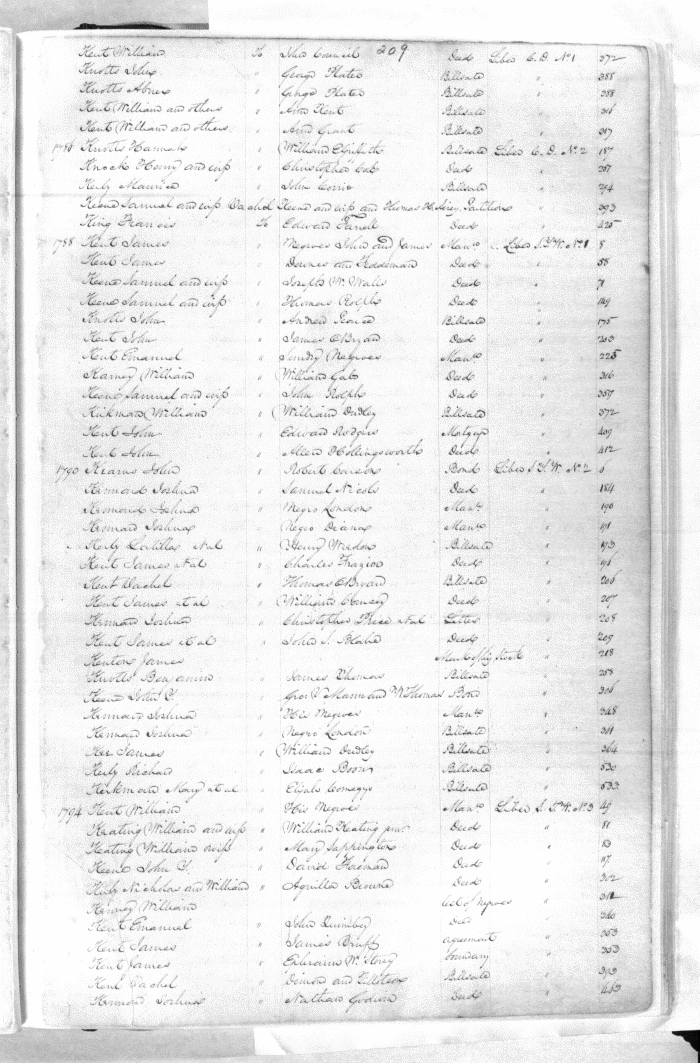 209
Kent William To John Council Deed Liber C. D. No 1 372
Knotts John " George Slater Billsale " 388
Knotts Abner " George Slater Billsale " 388
Kent William and others " Ann Kent Billsale " 316
Kent William and others " Ann Grant Billsale " 317
1788 Knotts Hannah " William Billsale Liber C. D. No. 2 187
Knock Henry and wife " Christopher Deed " 257
Kerly Maurice " John Billsale " 294
Keene Samuel and wife Rachel Keene and wife and Thomas Partition " 393
King Francis To Edward Deed " 425
1788 Kent James " Negroes John and James Manо Liber S. T. W. No 1 8
Kent James " Downes and Deed " 58
Keene Samuel and wife " Joseph W. Walls Deed " 71
Keene Samuel and wife " Thomas Rolph Deed " 149
Knotts John " Andrew Billsale " 175
Kent John " James OBryan Deed " 203
Kent Emanuel " Sundry Negroes Mano " 225
Karney William " William Deed " 316
Keene Samuel and wife " John Rolph Deed " 357
Kirkman William " William Dudley Billsale " 372
Kent John " Edward Rodgers Mortgage " 409
Kent John " Hollingsworth Deed " 412
1790 Kearns John " Robert Bond Liber S. T. W. No 2
Kinnard Joshua " Samuel Nicols Deed " 184
Kinnard Joshua " Negro London Mano " 190
Kinnard Joshua " Negro Diana Mano " 191
Kerly et al " Henry Billsale " 193
Kent James et al " Charles Frazier Deed " 196
Kent Rachel " Thomas OBryan Billsale " 206
Kent James et al " William Deed " 207
Kinnard Joshua " Christopher et al Letter " 208
Kent James et al " John S. Blake Deed " 209
Kenton James Mark of his Stock " 218
Knotts Benjamin " James Thomas Billsale " 258
Keene John Y. " Mann and W Thomas Bond " 306
Kinnard Joshua " His Negroes Mano " 348
Kinnard Joshua " Negro London Billsale " 311
Ker James " William Dudley Billsale " 364
Kerly Richard " Isaac Boon Billsale " 530
Kirkman Mary et al " Elijah Comegys Billsale " 533
1794 Kent William " His Negroes Mano Liber S. T. W. No 3 49
Keating William and wife " William Keating junr Deed " 81
Keating William wife " Mary Sappington Deed " 83
Keene John Y. " David Deed " 117
Kerly Nicholas and William " Aquilla Browne Deed " 312
Kinney William list of Negroes " 312
Kent Emanuel " John Quimby Deed " 340
Kent James " James Bruff agreement " 353
Kent James " Ephraim W. boundary " 353
Kent Rachel " Dimond and Tillotson Billsale " 393
Kinnard Joshua " Nathan Godwin Deed " 413